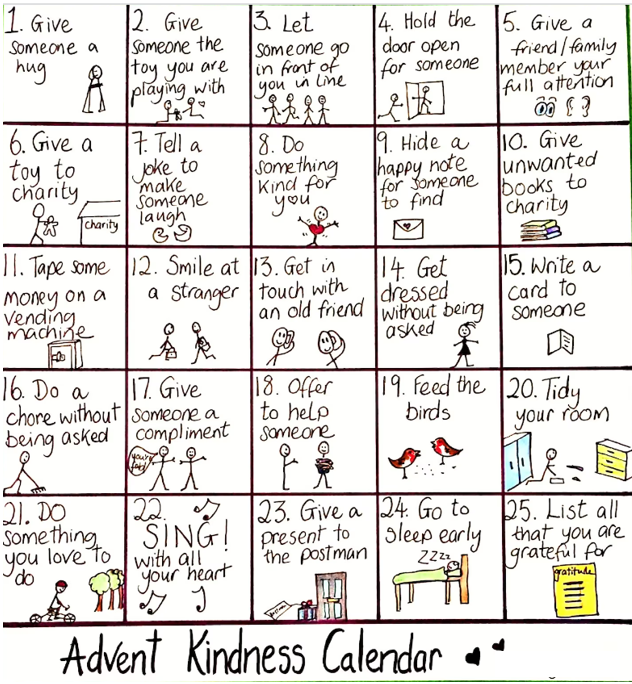 1. Give
someone a
hug
2. Give
someone the
toy you are
playing with
3. Let
someone go
in front of
you in line
4. Hold the
door open
for someone
5. Give a
friend/family
member your
full attention
6. Give a
toy to
charity
charity
7. Tell a
joke to
make
someone
laugh
8. Do
something
kind for
you
9. Hide a
happy note
for someone
to find
10. Give
unwanted
books to
charity
11. Tape some
money on a
vending
machine
12. Smile at
a stranger
13. Get in
touch with
an old friend
14. Get
dressed
without being
asked
15. Write a
card to
someone
16. Do a
chore without
being asked
17. Give
someone a
compliment
You're
fab!
18. Offer
to help
someone
19. Feed the
birds
20. Tidy
your room
21. DO
something
you love to
do
22.
SING!
with all
your heart
23. Give a
present to
the postman
24. Go to
sleep early
ZZZZ
25. List all
that you are
grateful for
gratitude
Advent Kindness Calendar